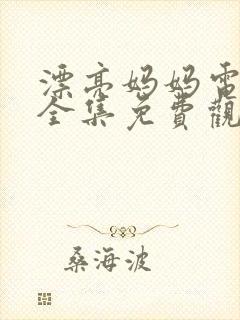 漂亮妈妈電
全集免費觀
桑海波